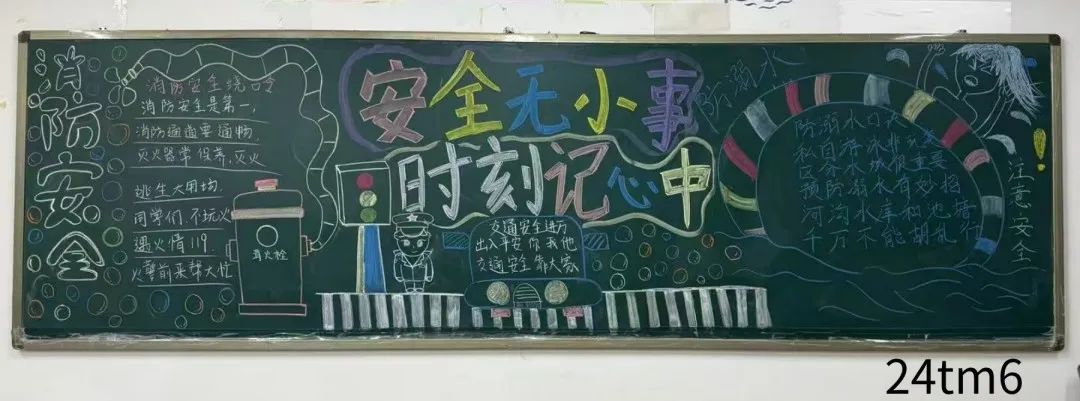 消防安全
消防安全绕口令
消防安全是第一,
消防通道要通畅
灭火器常保养,灭火
逃生大用场.
同学们不玩火
遇火情119.
火警前来帮大忙
安全无小事
时刻记心中
交通安全进万
出入平安你我他
交通安全靠大家
防溺水
防溺水口诀
预防溺水有妙招
河沟水库和池塘
千万不能胡乱行
注意安全
24tm6